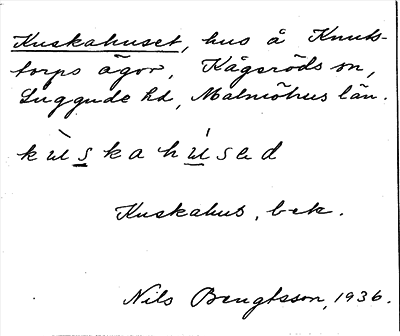 Kuskahuset, hus å Knuts-
torps ägor, Kågeröds sn,
Luggude hd, Malmöhus län.
kùskahúsəd
Kuskahus, bek.
Nils Bengtsson, 1936.